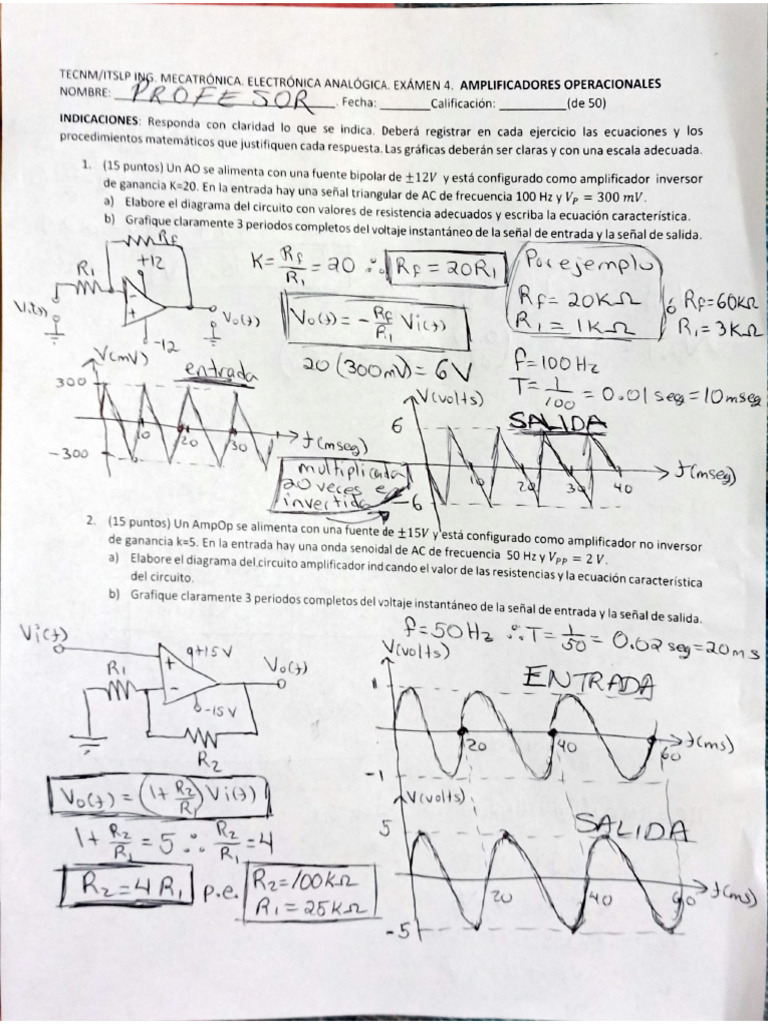 TECNM/ITSLP ING. MECATRÓNICA. ELECTRÓNICA ANALÓGICA. EXÁMEN 4. AMPLIFICADORES OPERACIONALES
NOMBRE: PROFESOR. Fecha: _______Calificación: __________(de 50)
INDICACIONES: Responda con claridad lo que se indica. Deberá registrar en cada ejercicio las ecuaciones y los
procedimientos matemáticos que justifiquen cada respuesta. Las gráficas deberán ser claras y con una escala adecuada.
1. (15 puntos) Un AO se alimenta con una fuente bipolar de ±12V y está configurado como amplificador inversor
de ganancia K=20. En la entrada hay una señal triangular de AC de frecuencia 100 Hz y V_P = 300 mV.
a) Elabore el diagrama del circuito con valores de resistencia adecuados y escriba la ecuación característica.
b) Grafique claramente 3 periodos completos del voltaje instantáneo de la señal de entrada y la señal de salida.
Rf
+12
R1
Vi(t)
- +
Vo(t)
-12
K = Rf/R1 = 20 ∴ Rf = 20R1
Por ejemplo
Rf = 20KΩ
R1 = 1KΩ
ó Rf=60KΩ
R1=3KΩ
Vo(t) = - Rf/R1 Vi(t)
20 (300mV) = 6V
f=100Hz
T= 1/100 = 0.01 seg = 10 mseg
V(mV)
entrada
300
-300
10 20 30
t(mseg)
V(volts)
SALIDA
6
-6
10 20 30 40
t(mseg)
multiplicada
20 veces e
invertida
2. (15 puntos) Un AmpOp se alimenta con una fuente de ±15V y está configurado como amplificador no inversor
de ganancia k=5. En la entrada hay una onda senoidal de AC de frecuencia 50 Hz y V_PP = 2 V.
a) Elabore el diagrama del circuito amplificador indicando el valor de las resistencias y la ecuación característica
del circuito.
b) Grafique claramente 3 periodos completos del voltaje instantáneo de la señal de entrada y la señal de salida.
f=50Hz ∴ T= 1/50 = 0.02 seg = 20 ms
Vi(t)
+15V
R1
+ -
Vo(t)
-15V
R2
V(volts)
ENTRADA
1
-1
20 40 60
t(ms)
Vo(t) = (1+ R2/R1) Vi(t)
1+ R2/R1 = 5 ∴ R2/R1 = 4
R2 = 4 R1 p.e. R2=100KΩ
R1 = 25KΩ
V(volts)
SALIDA
5
-5
20 40
t(ms)